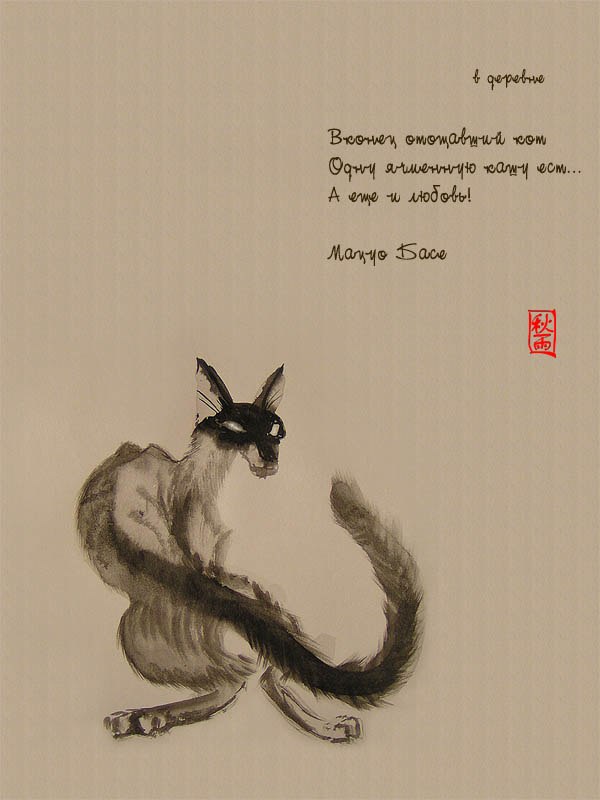 в деревне
Вконец отощавший кот
Одну ячменную кашу ест...
А еще и любовь!
Мацуо Басе
秋
雨